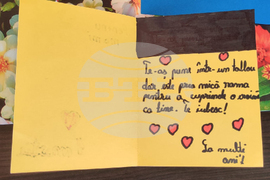 Te-aș pune într-un tablou
dar este prea mică rama
pentru a cuprinde o inimă
ca tine. Te iubesc!
La mulți
ani!